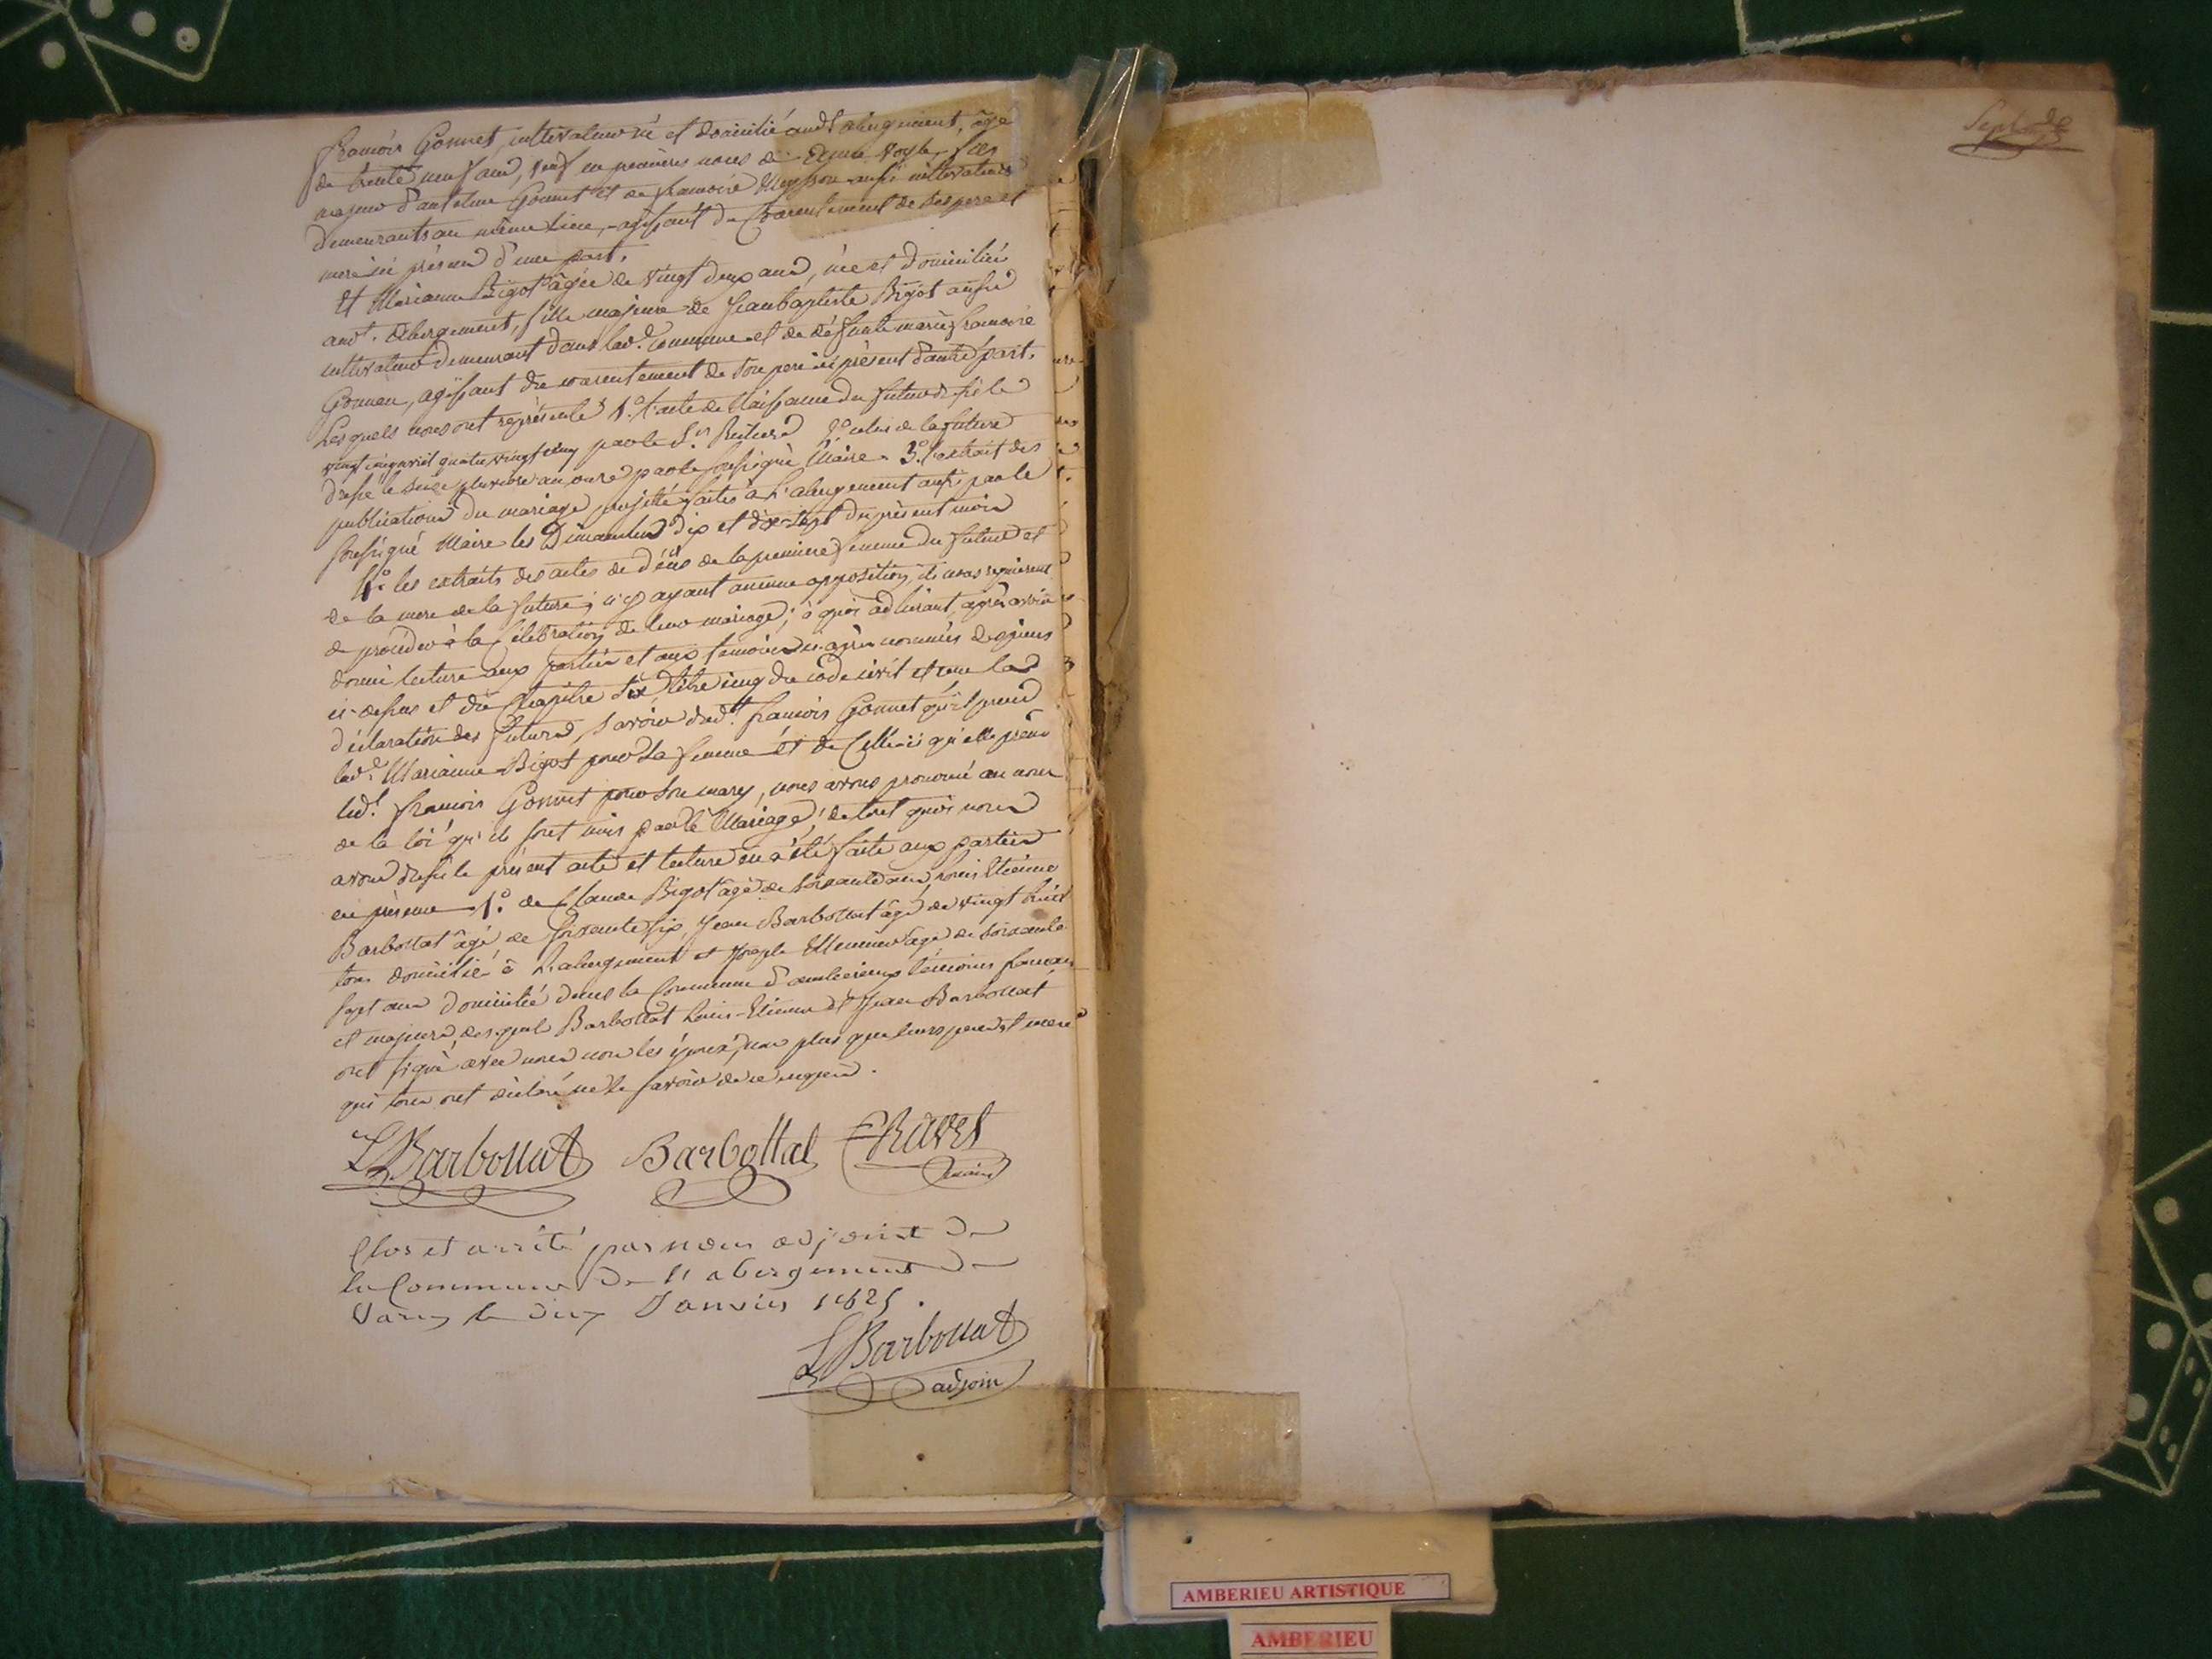 françois Gonnet cultivateur né et domicilié aud.t abergement, âgé
de trente neuf ans, veuf en premières noces de fils
majeur d'antelme Gonnet et de françoise aussi cultivateurs
demeurants au même lieu, agissant du Consentement de ses pere et
mere ici présens d'une part.
Et Marianne Bigot âgée de vingt deux ans, née et domiciliée
aud.t abergement, fille majeure de Jeanbaptiste Bigot aussi
cultivateur demeurant dans lad.e commune et de défunte marie françoise
agissant du consentement de son pere ici présent d'autre part.
Lesquels nous ont représenté 1.o l'acte de Naissance du futur dressé le
vingt cinq avril quatre vingt cinq par le S.r 2.o celui de la future
dressé le seize pluviose an onze par le soussigné Maire 3.o l'extrait des
publications du mariage projetté faites à L'abergement aussi par le
soussigné Maire les Dimanches dix et dix-sept du présent mois
4.o les extraits des actes de décès de la premiere femme du futur et
de la mere de la future; n'y ayant aucune opposition, ils nous requierent
de procéder à la Célébration de leur mariage; à quoi adhérant, après avoir
donné lecture aux parties et aux temoins ci-après nommés des pieces
ci-dessus et du Chapitre six titre cinq du code civil et reçu la
déclaration des futurs, savoir dud.t françois Gonnet qu'il prend
lad.e Marianne Bigot pour sa femme et de Celle-ci qu'elle prend
led.t françois Gonnet pour son mary, nous avons prononcé au nom
de la loi qu'ils sont unis par le Mariage; de tout quoi nous
avons dressé le présent acte et lecture en a été faite aux parties
en présence 1.o de Claude Bigot âgé de soixante ans Louis Etienne
Barbollat âgé de soixante six, Jean Barbollat âgé de vingt huit
tous domicilié à L'abergement et Joseph âgé de soixante
sept ans domicilié dans la Commune d'ambérieux témoins
et majeurs, desquels Barbollat Louis-Etienne et Jean Barbollat
ont signé avec nous non les époux, non plus que leurs pere et mere
qui tous ont déclaré ne le savoir de ce requis.
L Barbollat Barbollat Ravet
maire
Clos et arrêté par nous adjoint de
la Commune de L'abergement de
Varey le deux Janvier 1825.
L Barbollat
adjoin
AMBERIEU ARTISTIQUE
AMBERIEU